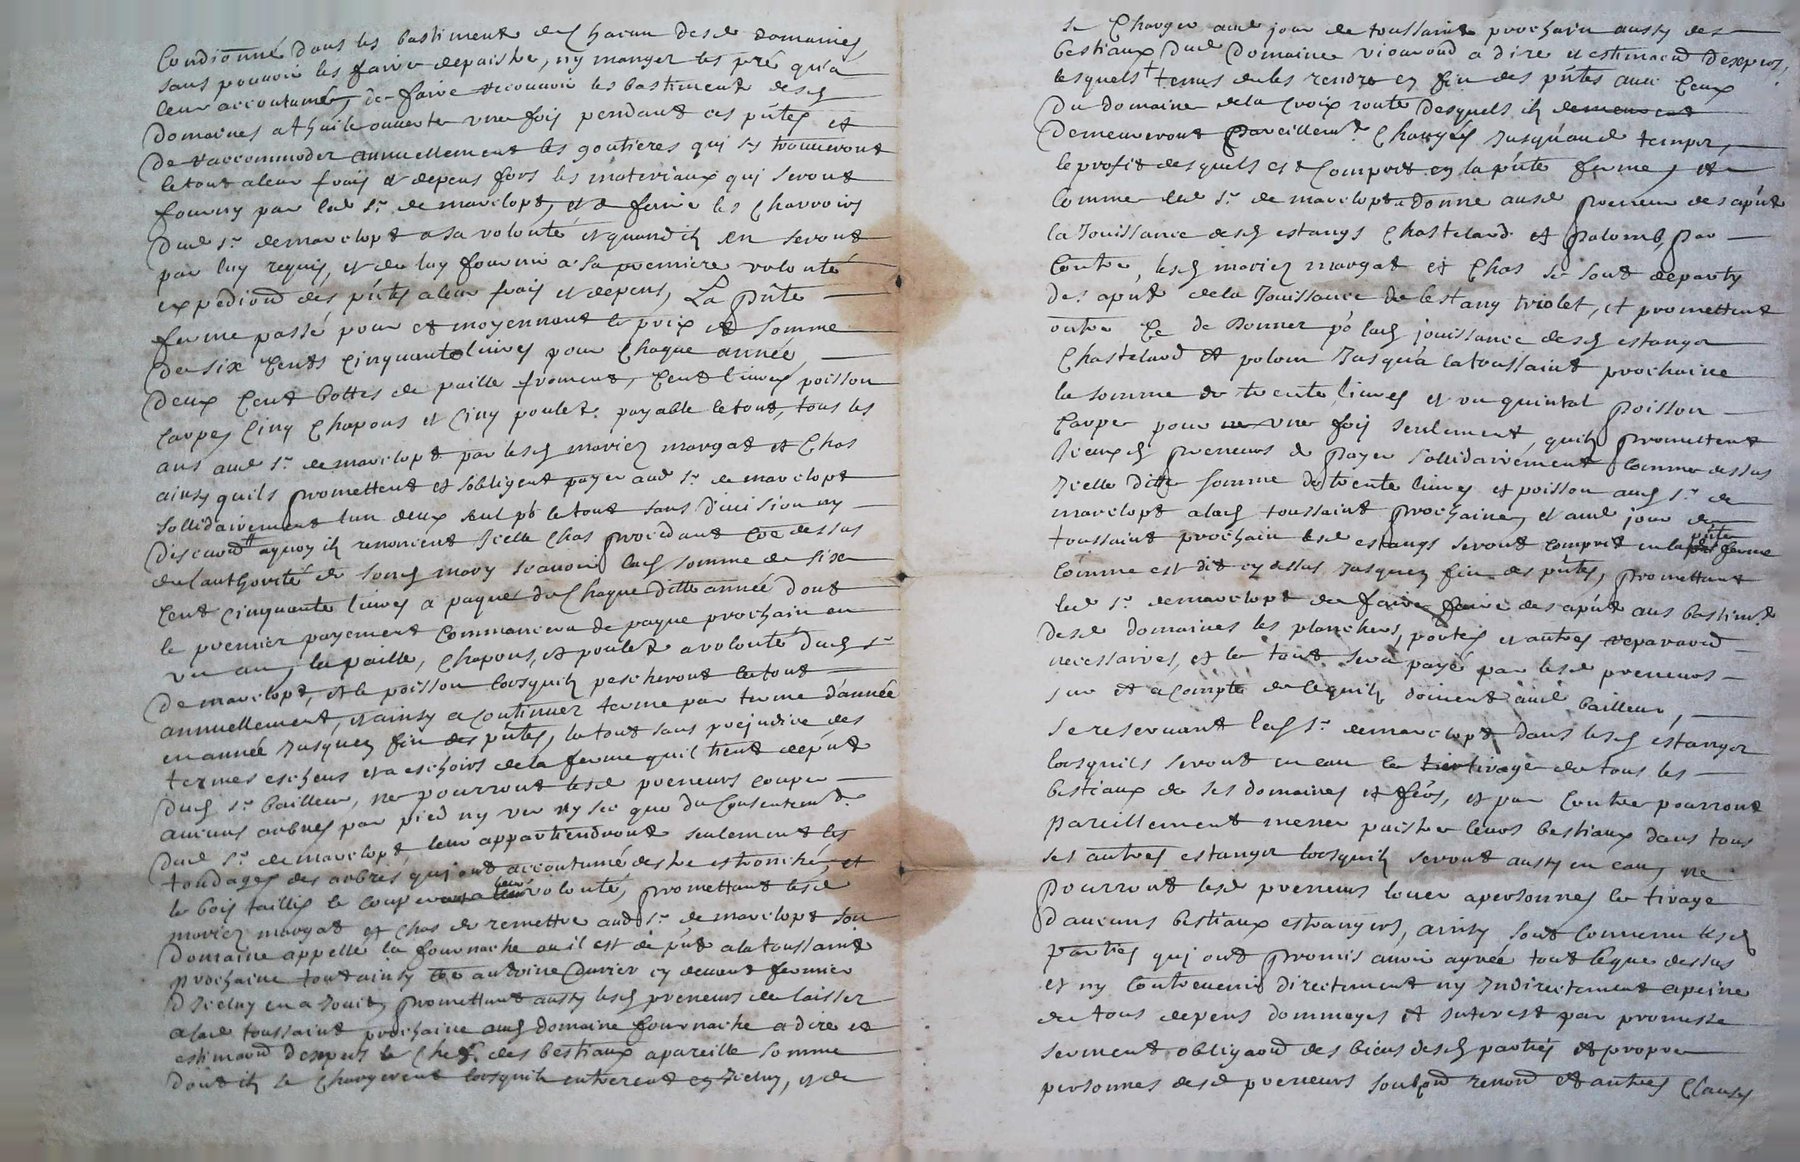 Condionné dans les bastiments de Chacun desd domaines,
sans pouvoir les faire depaistre, ny manger les pré qu'a
leur accoutumé, de faire recouvrir les bastiments desd
domaines a thuile ouverte une fois pendant ces pñtes et
de raccommoder annuellement les goutieres qui s'y trouveront
le tout a leur frais et depens fors les materiaux qui seront
fourny par led sr. de marclopt, et de faire les Charrois
dud sr. de marclopt a sa volonté et quand ils en seront
par luy requis, et de luy fournir a sa premiere volonté
expediond des pñtes a leur frais et depens, La pñte
ferme passé pour et moyennant le prix et somme
de six Cents Cinquante livres pour Chaque année,
deux Cent bottes de paille froment, Cent livres poisson
Carpes Cinq Chapons et Cinq poulets payable le tout, tous les
ans aud sr. de marclopt par lesd mariez margat et Chas
ainsy quils promettent et sobligent payer aud sr. de marclopt
sollidairement lun deux seul põ le tout sans division ny
discution a quoy ils renoncent Icelle Chas procedant Cõe dessus
de l'authorité de sond mary scavoir lad somme de six
Cent Cinquante livres a paques de Chaque ditte année dont
le premier payement Commancera de paque prochain en
un an, la paille, Chapons, et poulets a volonté dud sr
de marclopt, et le poisson lorsquils pescheront le tout
annuellement, et ainsy a Continuer terme par terme d'année
en année Jusques fin des pñtes, le tout sans prejudice des
termes escheus et a eschoirs de la ferme quil tient depñt
dud sr. bailleur, ne pourront lesd preneurs couper
aucuns arbres par pied ny ver ny sec que du Consentemt.
dud sr. de marclopt, leur appartiendront seulement les
tondages des arbres qui ont accoutumé destre estronchés, et
le bois taillis le couper a leur volonté, promettant lesd
mariez margat et Chas de remettre aud sr. de marclopt son
domaine appellé la fournache ou il est de pñt a la toussaint
prochaine tout ainsy antoine Cuvier cy devant fermier
d'Iceluy en a Jouis, promettant aussy lesd preneurs de laisser
a lad toussaint prochaine aud domaine fournache a dire et
estimaond d'experts le Chetl. des bestiaux a pareille somme
dont ils se Chargerent lorsquils entrerent en Iceluy, et de
se Charger aud jour de toussaint prochain aussy des
bestiaux dud domaine vioavoud a dire et estimaond d'experts,
lesquels + tenus de les rendre en fin des pñtes avec Ceux
du domaine de la Croix route desquels ils demeurent
demeureront pareillemt. Chargés Jusqu'aud temps,
le profit desquels est Compris en la pñte ferme, et
Comme led sr. de marclopt a donne ausd preneurs des apñt
la Jouissance desd estangs Chastelard et Palomb, Par
Contre, lesd mariez margat et Chas se sont departy
des apñt de la Jouissance de lestang triolet, et promettent
outre Ce de donner põ lad jouissance desd estangs
Chastelard et palom Jusqu'a la toussaint prochaine
la somme de trente livres et un quintal poisson
Carpe pour une fois seulement, quils promettent
Iceux d preneurs de payer sollidairement Comme dessus
Icelle ditte somme de trente livres et poisson aud sr. de
marclopt a lad toussaint prochaine, et aud jour de
toussaint prochain lesd estangs seront compris en la pñte ferme
Cõmme est dit cy dessus Jusques fin des pñtes, promettant
led sr. de marclopt de faire faire des apñt aus bastimt.
desd domaines les planchers, portes et autres reparaond
necessaires, et le tout sera payé par lesd preneurs
sur et a compte de Cequils doivent aud bailleur,
se reservant led sr. de marclopt dans lesd estangs
lorsquils seront en eau le tirtivage de tous les
bestiaux de ses domaines et fiés, et par Contre pourront
pareillement mener paistre leurs bestiaux dans tous
ses autres estangs lorsquils seront aussy en eau, ne
pourront lesd preneurs louer a personnes le tivage
d'aucuns bestiaux estrangers, ainsy sont Convenu lesd
parties qui ont promis avoir agréé tout Ceque dessus
et ny Contrevenir directement ny Indirectement a peine
de tous depens dommages et Interest par promesse
serment obligaond des biens desd parties et propre
personnes desd preneurs soubmond renond et autres Clauses